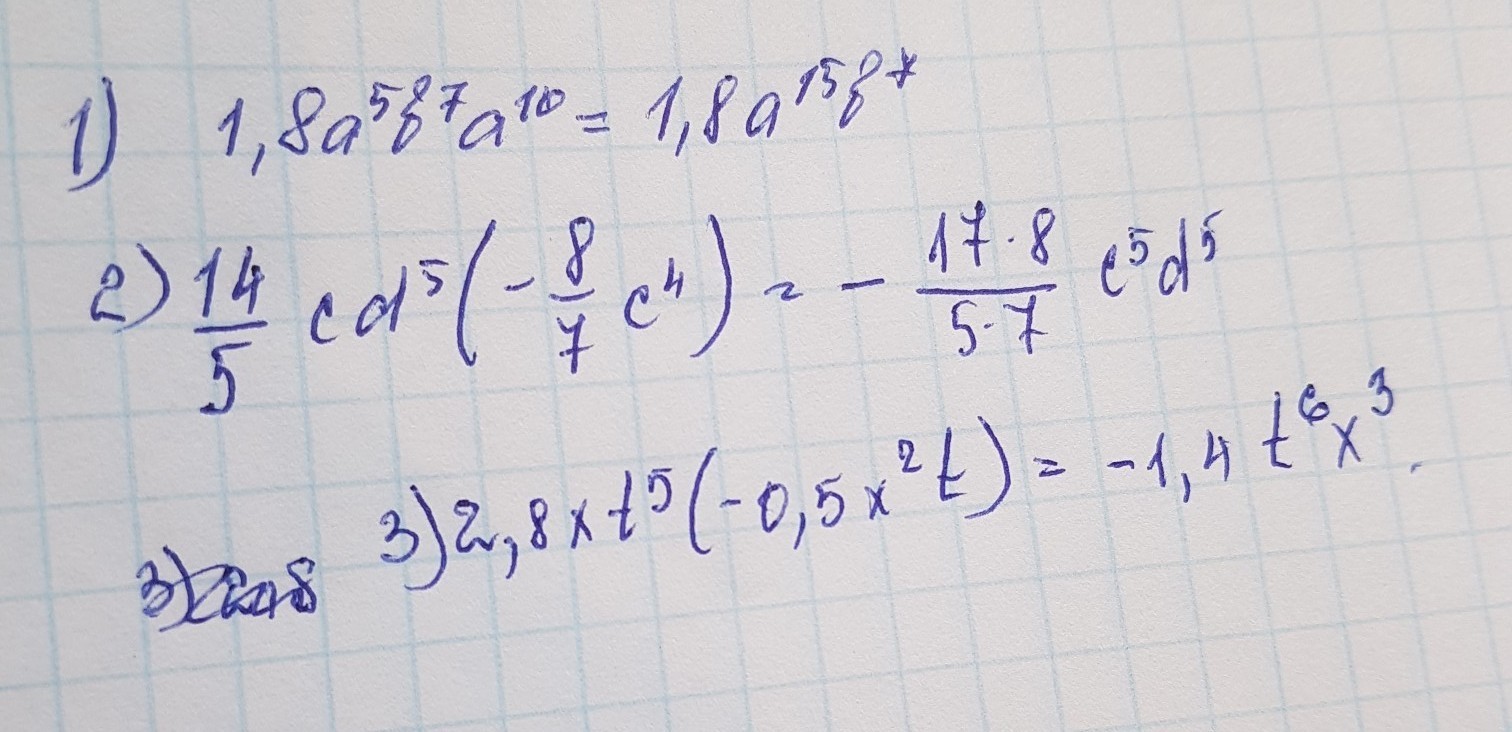 1) 1,8a⁵b⁷a¹⁰ = 1,8a¹⁵b⁷
2) 14/5 cd⁵(-8/7 c⁴) = - 17·8/5·7 c⁵d⁵
3) 2,8xt⁵(-0,5x²t) = -1,4t⁶x³.
3)